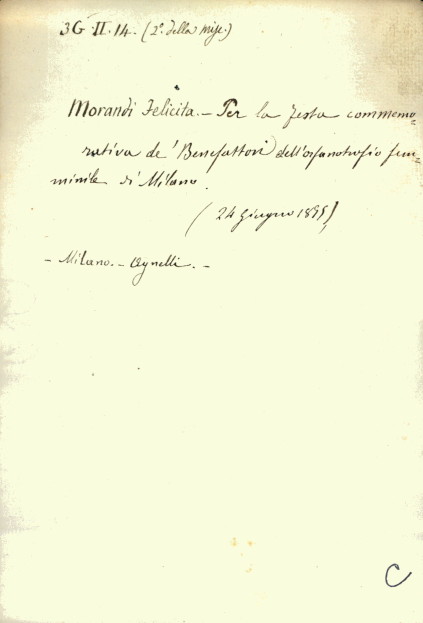 3G·II·14. (2ª della misc.)
Morandi Felicita. – Per la festa commemo=
rativa de' Benefattori dell'orfanotrofio fem=
minile di Milano.
(24 giugno 1895)
– Milano. – Agnelli. –
C